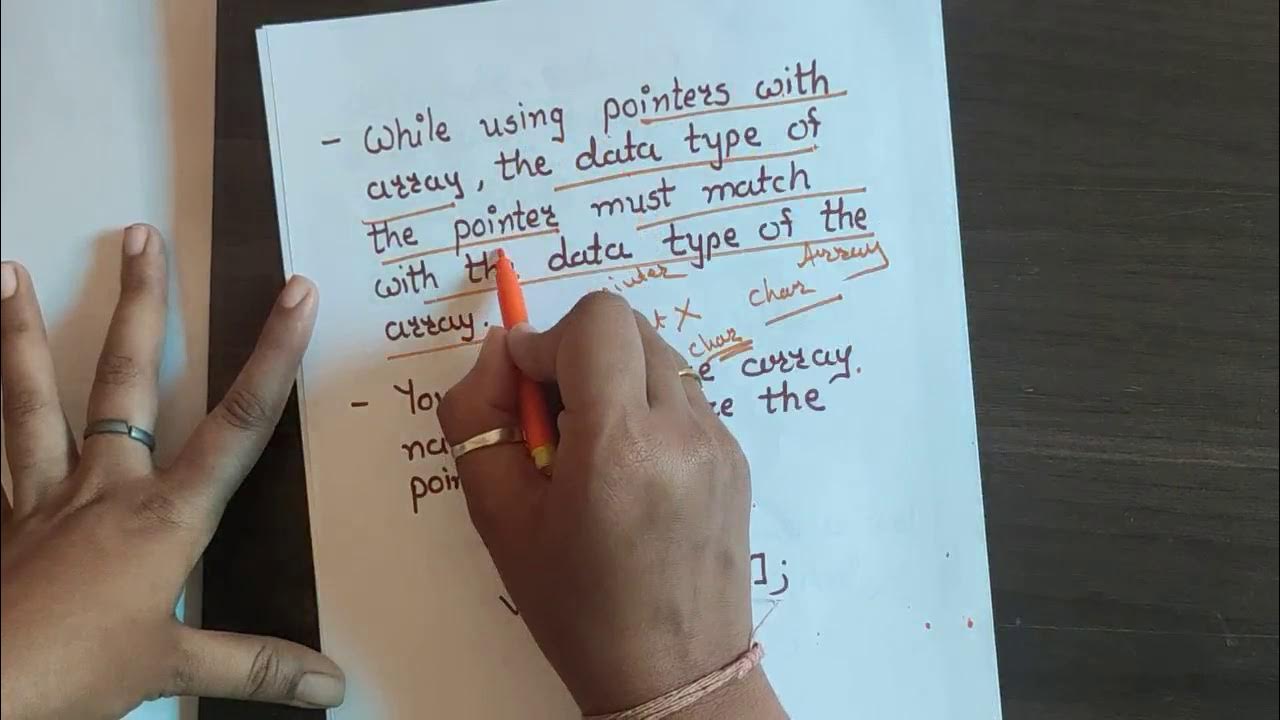 - While using pointers with
array, the data type of
the pointer must match
with the data type of the
array.
Array
char
X
char
array.
- You
the
];